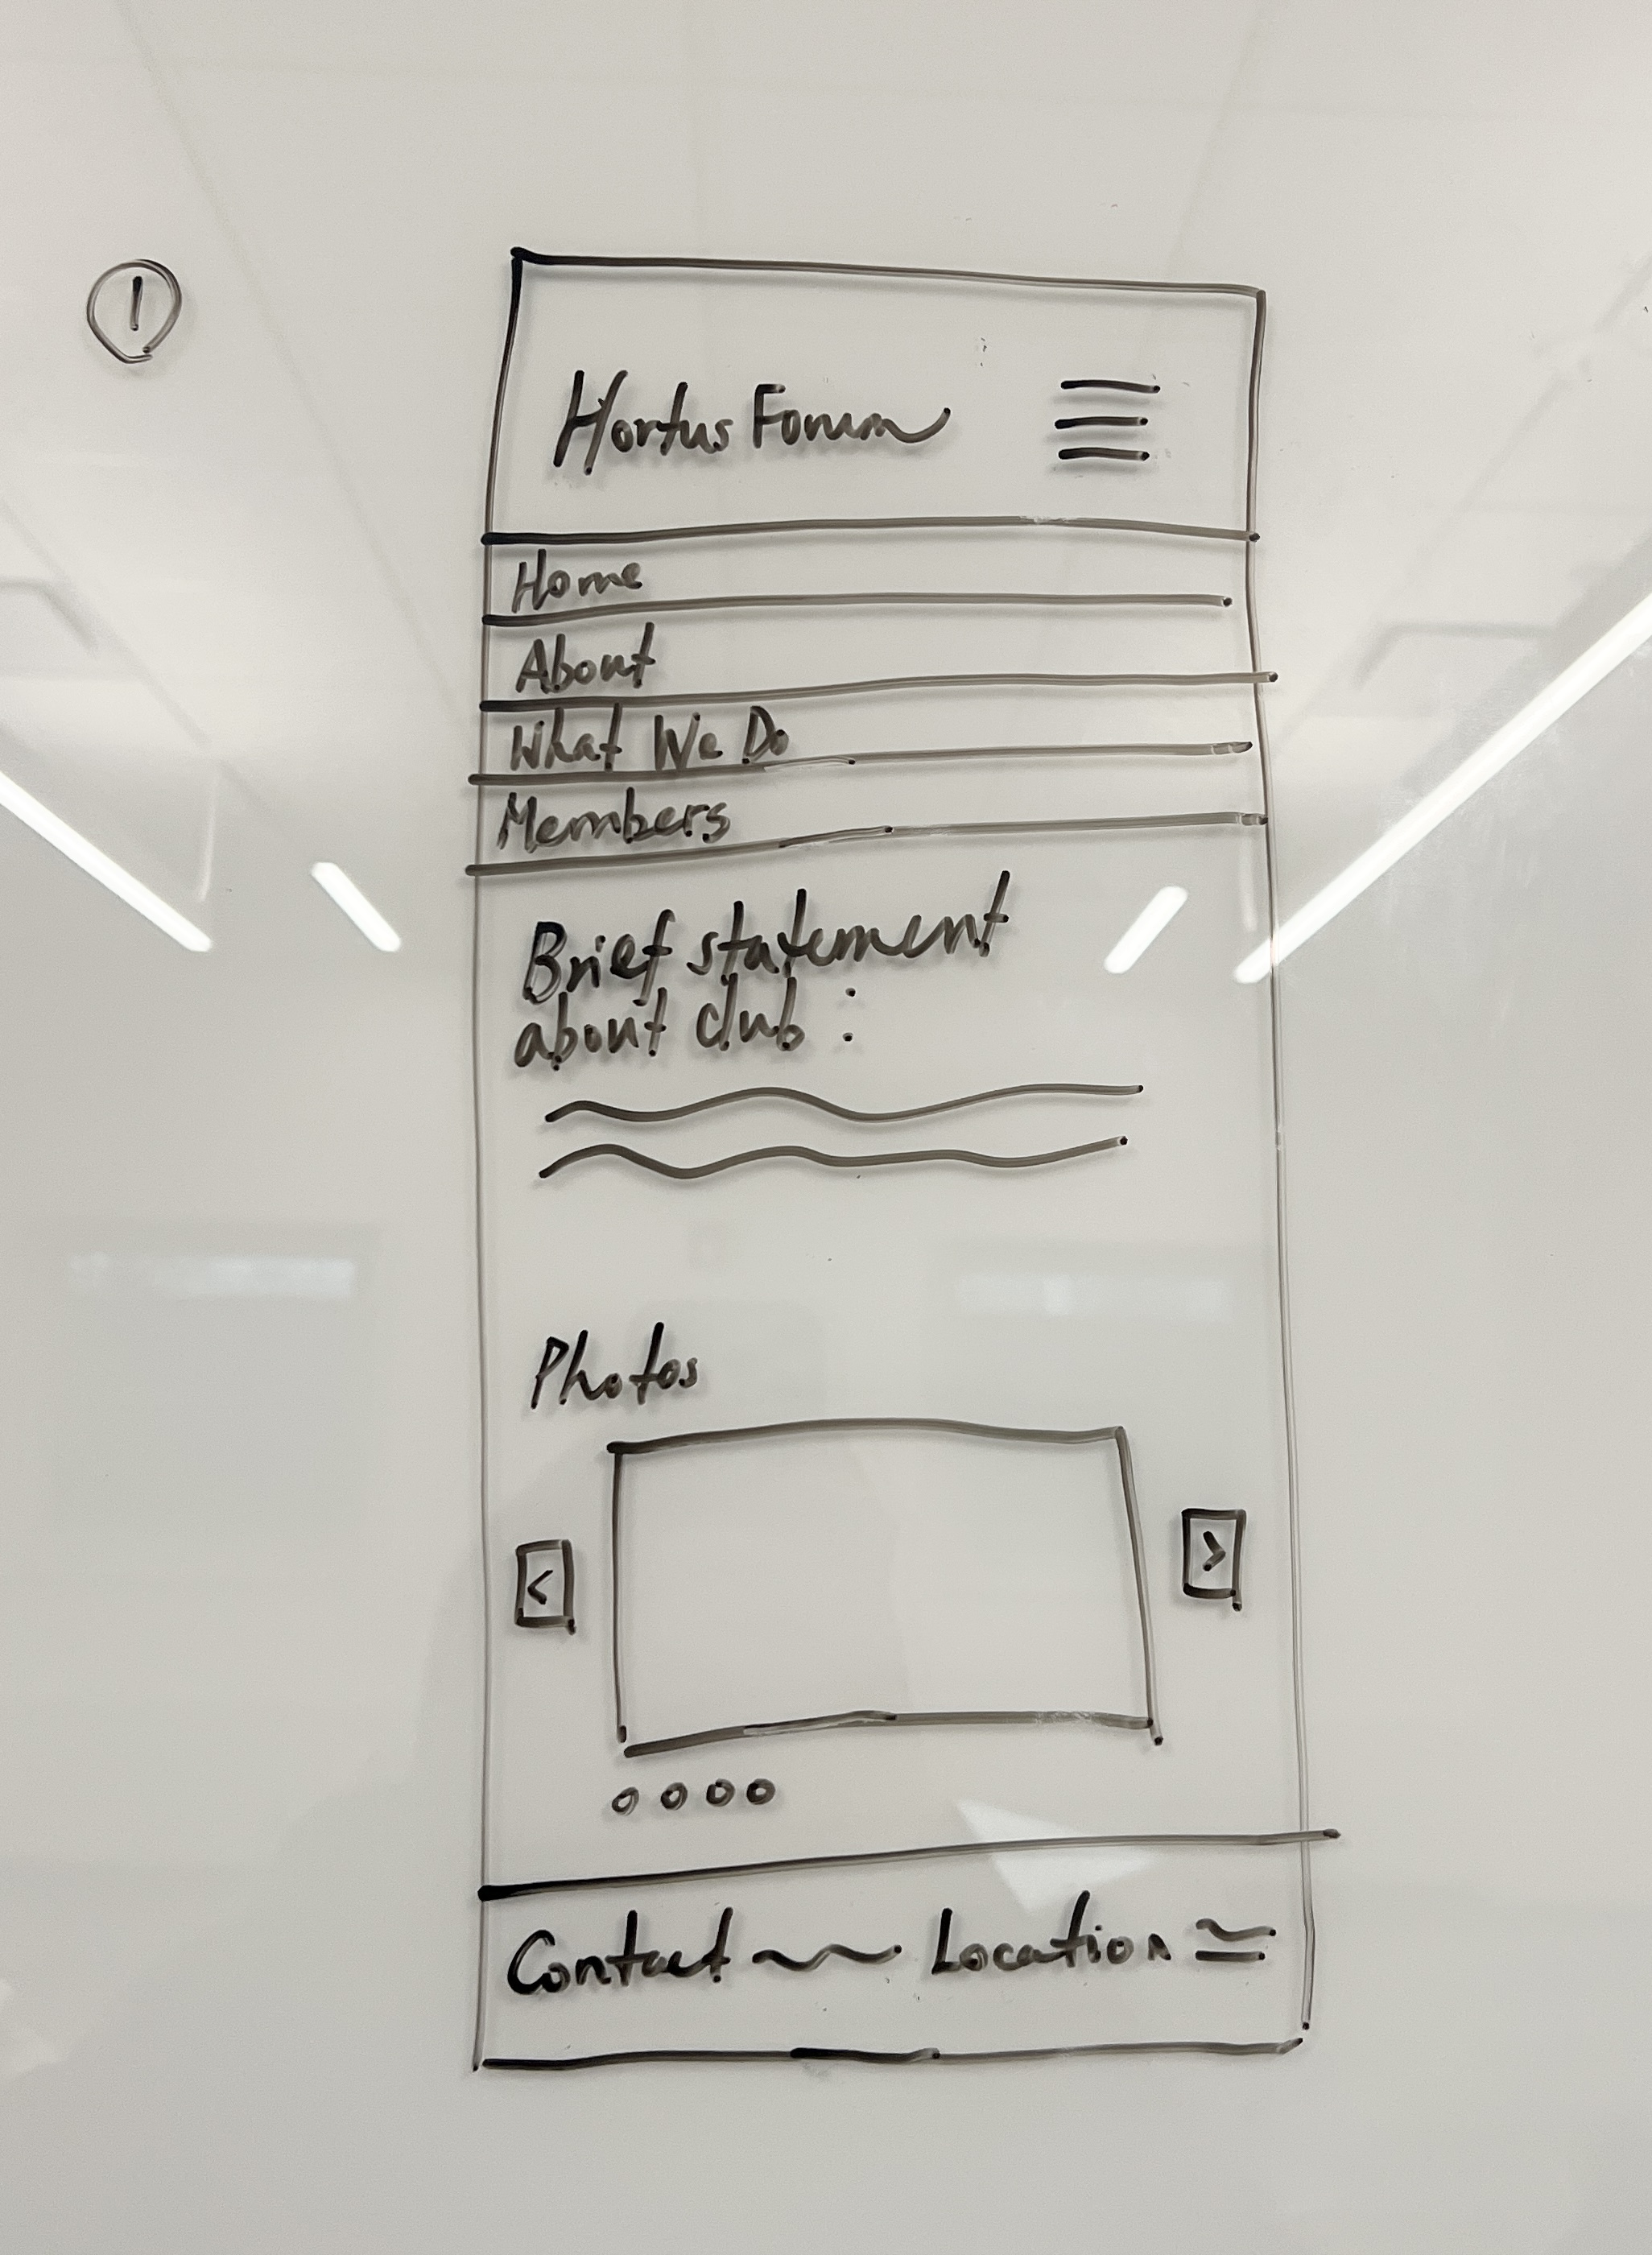 1
Hortus Forum
Home
About
What We Do
Members
Brief statement
about club :
Photos
<
>
Contact Location